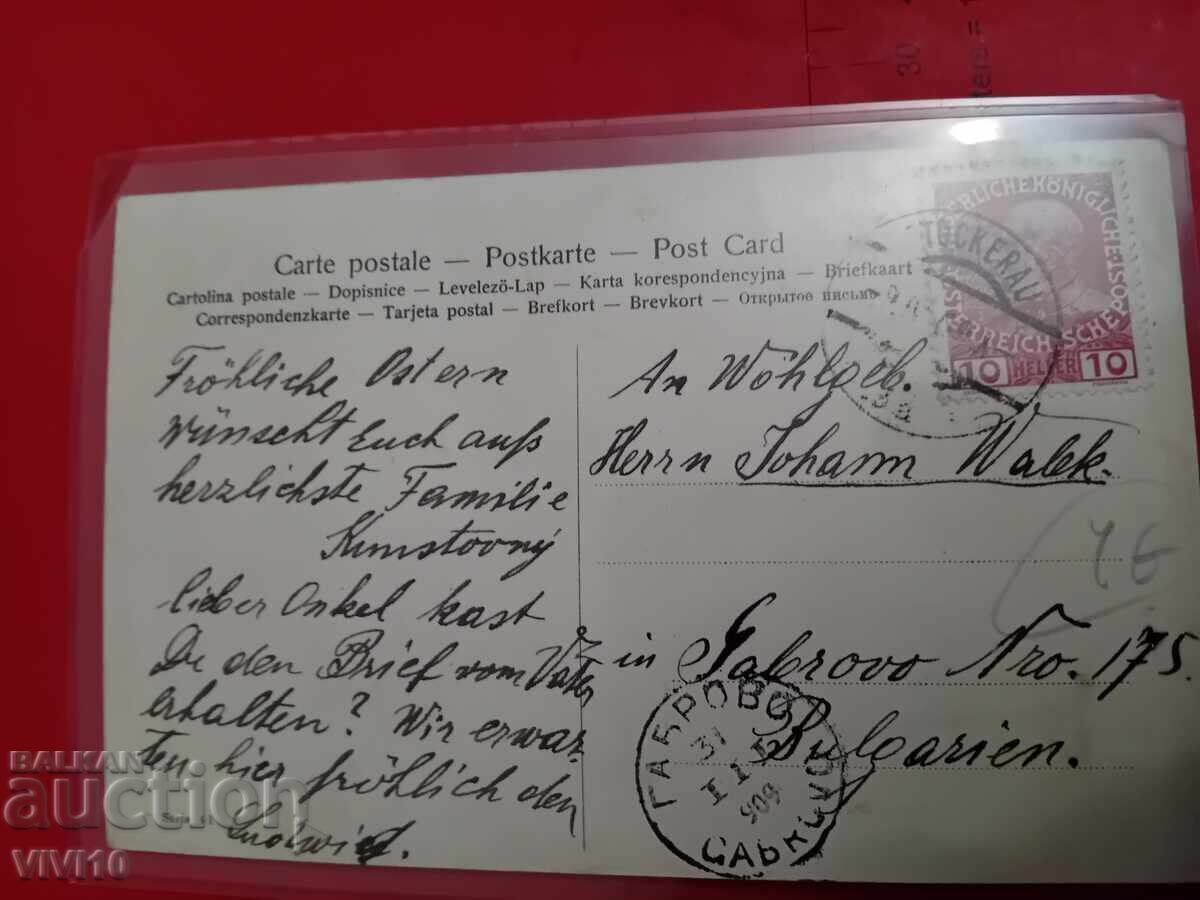 30
Carte postale — Postkarte — Post Card
Cartolina postale — Dopisnice — Levelező-Lap — Karta korespondencyjna — Briefkaart
Correspondenzkarte — Tarjeta postal — Brefkort — Brevkort — Открытое письмо
TOCKERAU
10 HELLER 10
Fröhliche Ostern
wünscht Euch aufs
herzlichste Familie
Kunstovný
lieber Onkel hast
Du den Brief vom Vater
erhalten? Wir erwar-
ten hier fröhlich den
Ludwig.
An Wohlgeb.
Herrn Johann Walek.
in Gabrovo Nro. 175.
Bulgarien.
ГАБРОВО
31
909
4 €
BALKAN
auction
VIVI10